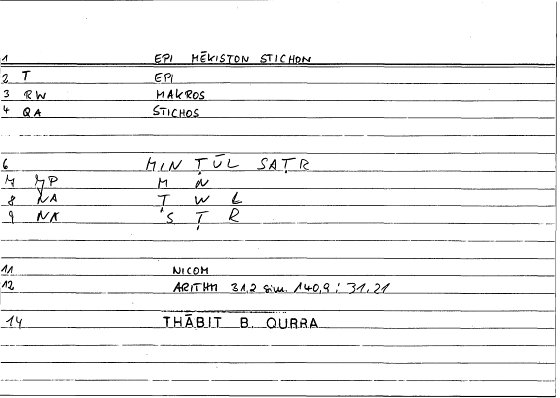 1 EPI MĒKISTON STICHON
2 T EPI
3 RW MAKROS
4 QA STICHOS
6 MIN ṬŪL SAṬR
7 MP M N
8 NA Ṭ W L
9 NA S Ṭ R
11 NICOM
12 ARITHM 31,2 sim. 140,9; 31,21
14 THĀBIT B. QURRA